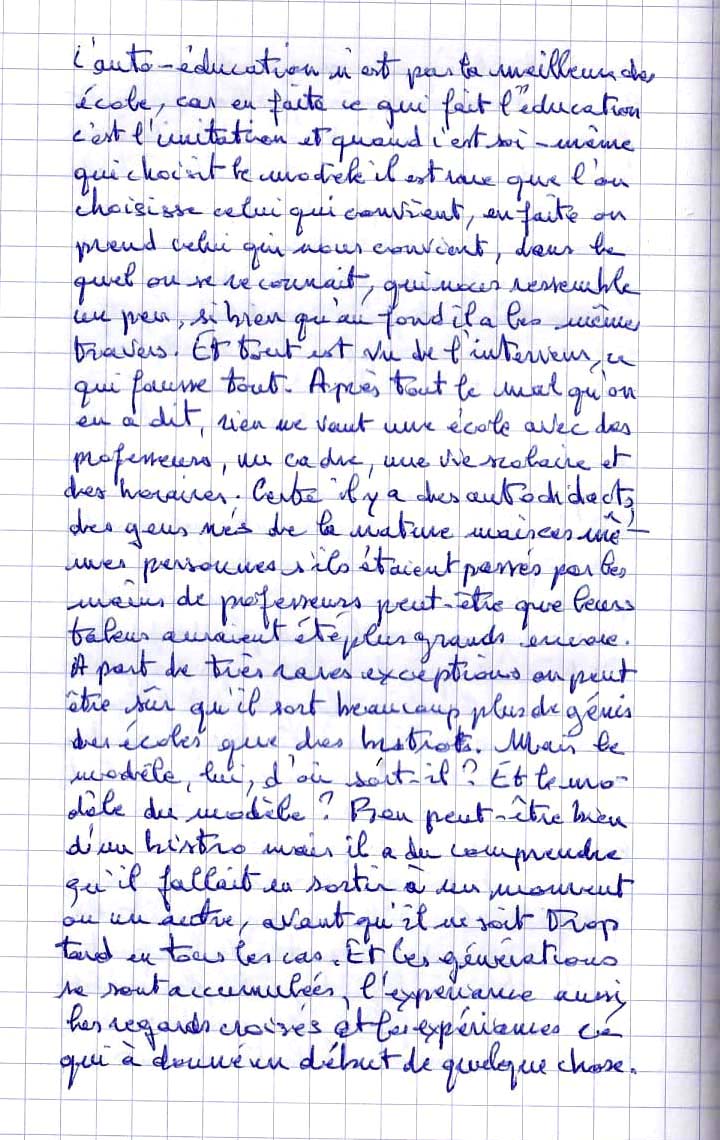 L'auto-éducation n'est pas la meilleure des
école, car en faite ce qui fait l'éducation
c'est l'imitation et quand c'est soi-même
qui choisit le modèle il est rare que l'on
choisisse celui qui convient, en faite on
prend celui qui nous convient, dans le
quel on se reconnait, qui nous ressemble
un peu, si bien qu'au fond il a les mêmes
travers. Et tout est vu de l'interieur, ce
qui fausse tout. Après tout le mal qu'on
en a dit, rien ne vaut une école avec des
professeurs, un cadre, une vie scolaire et
des horaires. Certe il y a des autodidacts,
des gens nés de la nature mais ces mê-
mes personnes s'ils étaient passés par les
mains de professeurs peut-être que leurs
talens auraient été plus grands encore.
A part de très rares exceptions on peut
être sûr qu'il sort beaucoup plus de génis
des écoles que des bistrots. Mais le
modèle, lui, d'où sort-il? Et le mo-
dèle du modèle? Ben peut-être bien
d'un bistro mais il a du comprendre
qu'il fallait en sortir à un moment
ou un autre, avant qu'il ne soit trop
tard en tous les cas. Et les générations
se sont accumulées, l'experiance aussi,
les regards croisés et les expériances ce
qui à donné un début de quelque chose.